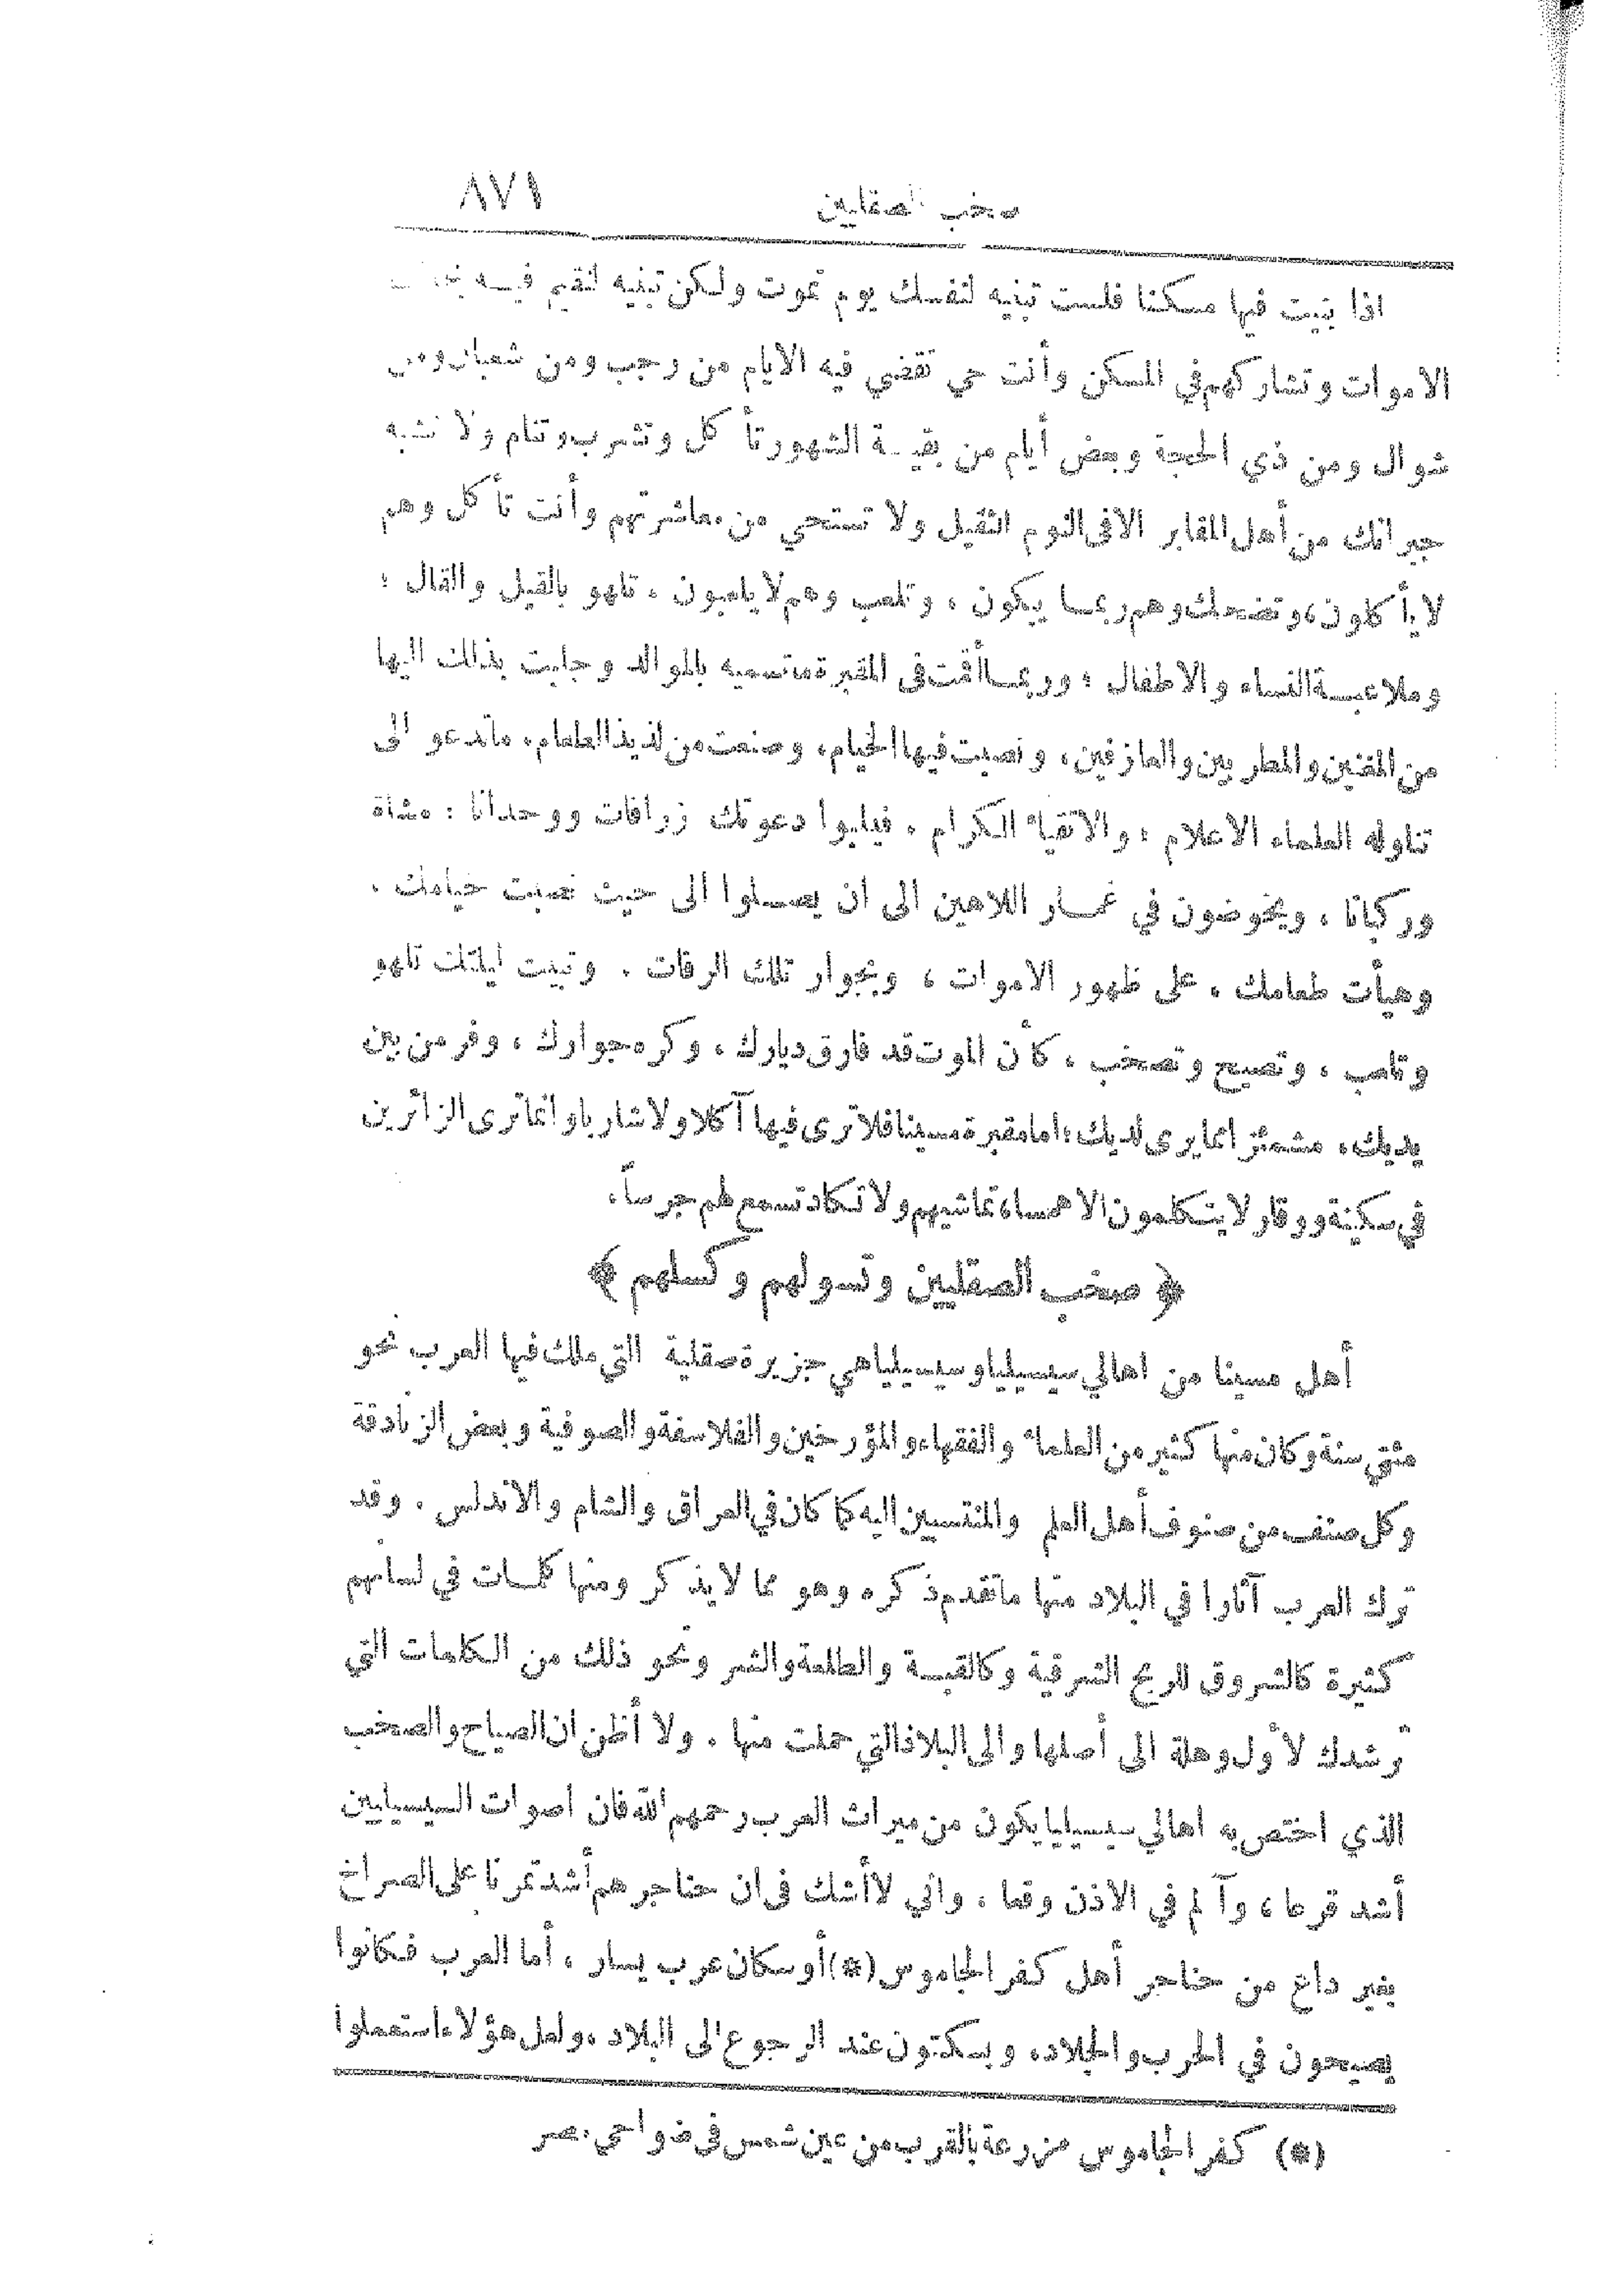 صخب الصقليين ٨٧١
اذا بنيت فيها مسكنا فلست تبنيه لنفسك يوم تموت ولكن تبنيه لتقيم فيه
الاموات وتشاركهم في المسكن وأنت حي تقضي فيه الايام من رجب ومن شعبان ومن
شوال ومن ذي الحجة وبعض أيام من بقيـة الشهور تأكل وتشرب وتنام ولا تشبه
جيرانك من أهل المقابر الا في النوم الثقيل ولا تستحي من معاشرتهم وأنت تأكل وهم
لا يأكلون، وتضحك وهم ربمـا يبكون ، وتلعب وهم لا يلعبون ، تلهو بالقيل والقال ؛
وملاعبـة النساء والاطفال ؛ وربمـا أقمت في المقبرة ما تسميه بالموالد وجلبت بذلك اليها
من المغنين والمطربين والعازفين، ونصبت فيها الخيام، وصنعت من لذيذ الطعام، ما تدعو الى
تناوله العلماء الاعلام ؛ والاتقياء الكرام ، فيلبوا دعوتك زرافات ووحدانا : مشاة
وركبانا ، ويخوضون في غمـار اللاهين الى ان يصـلوا الى حيث نصبت خيامك ،
وهيأت طعامك ، على ظهور الاموات ، وبجوار تلك الرفات . وتبيت ليلتك تلهو
وتلعب ، وتصيح وتصخب ، كأن الموت قد فارق ديارك ، وكره جوارك ، وفر من بين
يديك، مشمئزا مما يرى لديك؛ اما مقبرة مسينا فلا ترى فيها آكلا ولا شاربا وانما ترى الزائرين
في سكينة ووقار لا يتكلمون الا همسا، تماشيهم ولا تكاد تسمع لهم جرسا.
﴿ صخب الصقليين وتسولهم وكسلهم ﴾
أهل مسينا من اهالي سيسيليا وسيسيليا هي جزيرة صقلية التي ملك فيها العرب نحو
مئتي سنة وكان منها كثير من العلماء والفقهاء والمؤرخين والفلاسفة والصوفية وبعض الزنادقة
وكل صنف من صنوف أهل العلم والمنتسبين اليه كما كان في العراق والشام والاندلس . وقد
ترك العرب آثارا في البلاد منها ما تقدم ذكره وهو مما لا يذكر ومنها كلمـات في لسانهم
كثيرة كالشروق للريح الشرقية وكالقبـة والطلعة والشر ونحو ذلك من الكلمات التي
ترشدك لأول وهلة الى أصلها والى البلاد التي حملت منها . ولا أظن ان الصياح والصخب
الذي اختص به اهالي سيسيليا يكون من ميراث العرب رحمهم الله فان اصوات السيسيليين
أشد قرعا ، وآلم في الاذن وقعا ، واني لا أشك في ان حناجرهم أشد تمرنا على الصراخ
بغير داع من حناجر أهل كفر الجاموس (*) أو سكان عرب يسار ، أما العرب فكانوا
يصيحون في الحرب والجلاد، ويسكتون عند الرجوع الى البلاد، ولعل هؤلاء استعملوا
(*) كفر الجاموس مزرعة بالقرب من عين شمس في ضواحي مصر